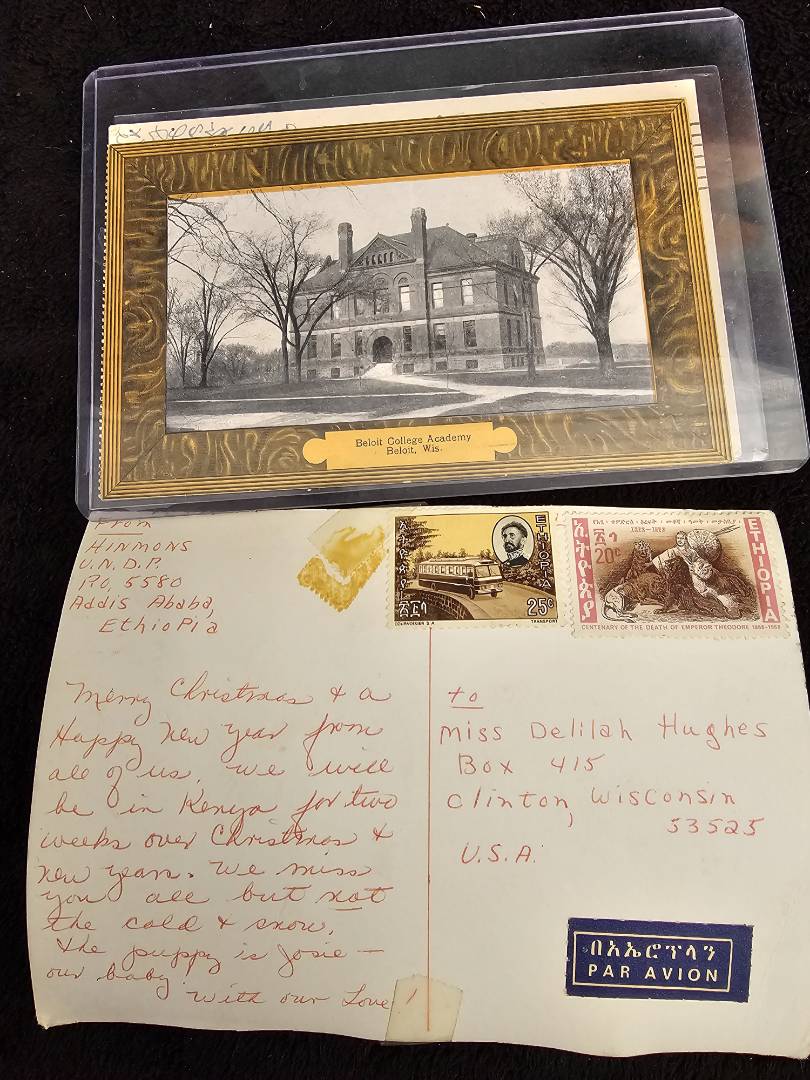 Beloit College Academy
Beloit, Wis.
From
HINMONS
U.N.D.P.
P.O. 5580
Addis Ababa,
Ethiopia
Merry Christmas & a
Happy New Year from
all of us. We will
be in Kenya for two
weeks over Christmas &
New Years. We miss
you all but not
the cold & snow.
The puppy is Josie —
our baby
With our Love
ኢትዮጵያ
ETHIOPIA
25c
TRANSPORT
ኢትዮጵያ
1868-1968
20c
ETHIOPIA
CENTENARY OF THE DEATH OF EMPEROR THEODORE 1868-1968
to
Miss Delilah Hughes
Box 415
Clinton, Wisconsin
53525
U.S.A.
በአኤሮፕላን
PAR AVION